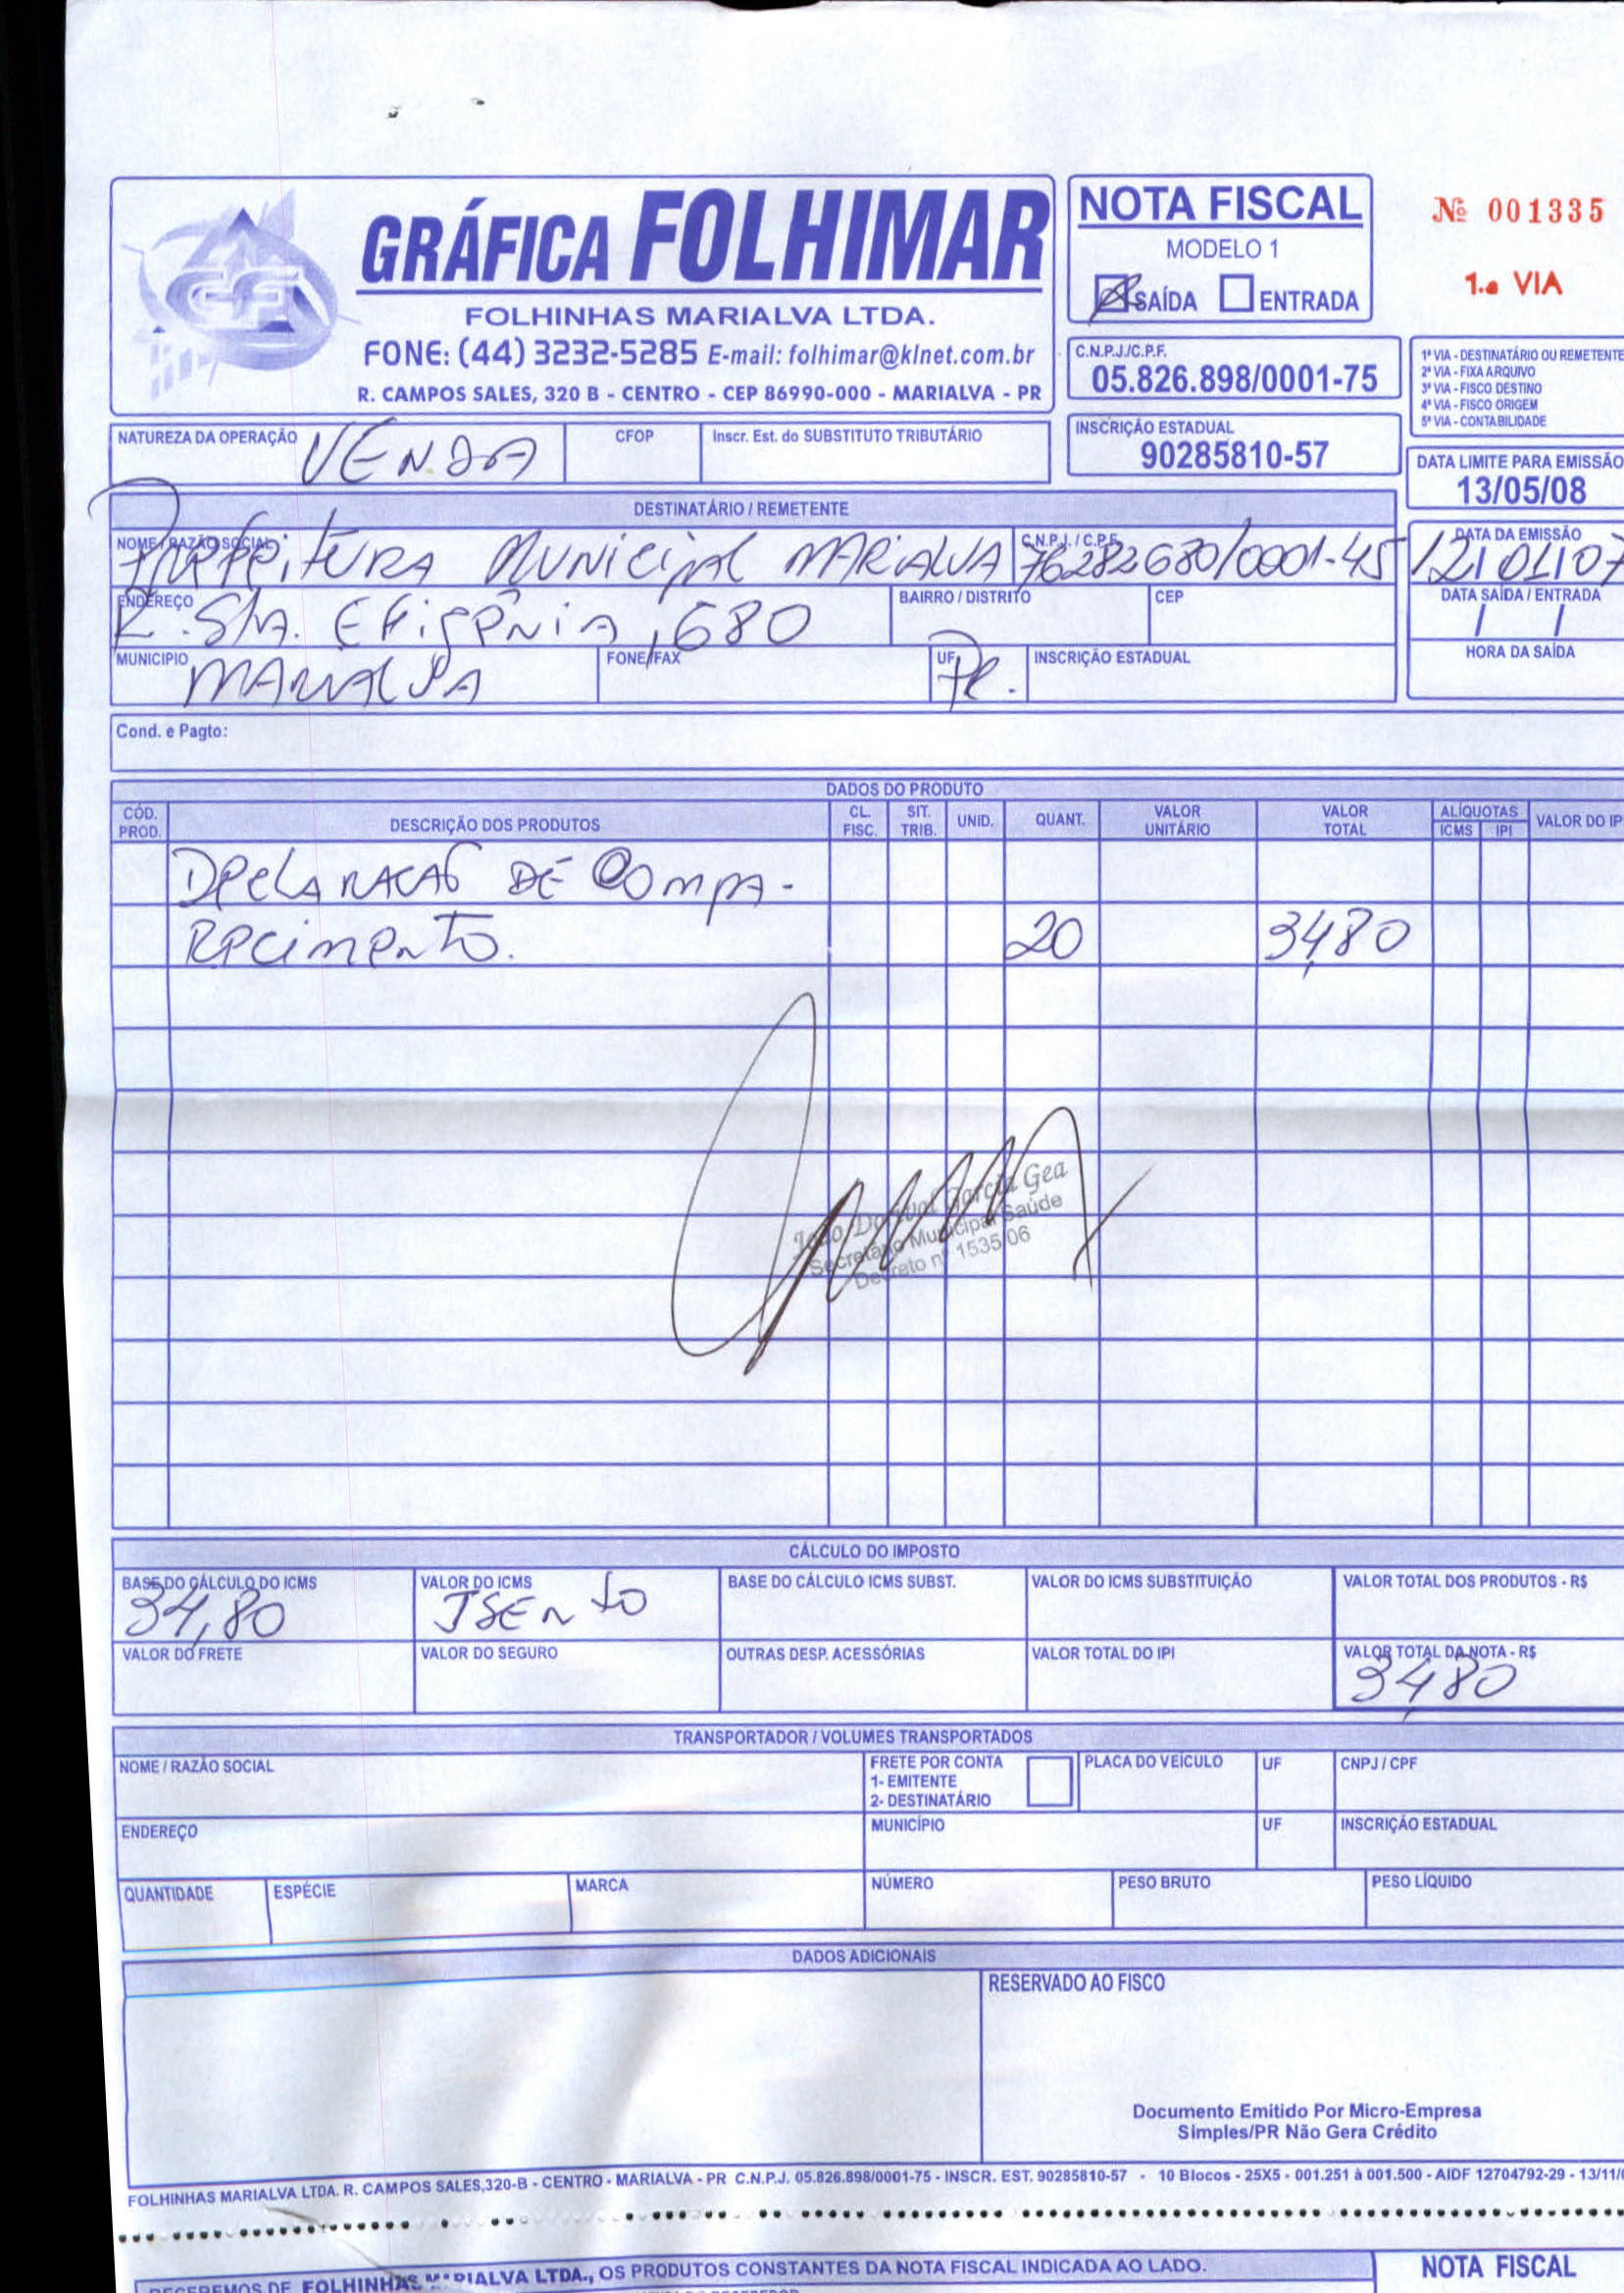 GRÁFICA FOLHIMAR
FOLHINHAS MARIALVA LTDA.
FONE: (44) 3232-5285 E-mail: folhimar@klnet.com.br
R. CAMPOS SALES, 320 B - CENTRO - CEP 86990-000 - MARIALVA - PR
NOTA FISCAL
MODELO 1
SAÍDA ENTRADA
Nº 001335
1.a VIA
C.N.P.J./C.P.F.
05.826.898/0001-75
1ª VIA - DESTINATÁRIO OU REMETENTE
2ª VIA - FIXA ARQUIVO
3ª VIA - FISCO DESTINO
4ª VIA - FISCO ORIGEM
5ª VIA - CONTABILIDADE
NATUREZA DA OPERAÇÃO VENDA CFOP Inscr. Est. do SUBSTITUTO TRIBUTÁRIO
INSCRIÇÃO ESTADUAL
90285810-57
DATA LIMITE PARA EMISSÃO
13/05/08
DESTINATÁRIO / REMETENTE
NOME / RAZÃO SOCIAL C.N.P.J. / C.P.F. DATA DA EMISSÃO
Prefeitura Municipal MARIALVA 76282680/0001-45 12/01/07
ENDEREÇO BAIRRO / DISTRITO CEP DATA SAÍDA / ENTRADA
R. Sta. Efigênia, 680 / /
MUNICIPIO FONE/FAX UF INSCRIÇÃO ESTADUAL HORA DA SAÍDA
MARIALVA Pr.
Cond. e Pagto:
DADOS DO PRODUTO
CÓD. PROD. DESCRIÇÃO DOS PRODUTOS CL. FISC. SIT. TRIB. UNID. QUANT. VALOR UNITÁRIO VALOR TOTAL ALÍQUOTAS ICMS IPI VALOR DO IP
Declaração de Compa-
recimento. 20 34,80
João Dorival Garcia Gea
Secretário Municipal Saúde
Decreto nº 1535/06
CÁLCULO DO IMPOSTO
BASE DO CÁLCULO DO ICMS VALOR DO ICMS BASE DO CÁLCULO ICMS SUBST. VALOR DO ICMS SUBSTITUIÇÃO VALOR TOTAL DOS PRODUTOS - R$
34,80 ISENTO
VALOR DO FRETE VALOR DO SEGURO OUTRAS DESP. ACESSÓRIAS VALOR TOTAL DO IPI VALOR TOTAL DA NOTA - R$
34,80
TRANSPORTADOR / VOLUMES TRANSPORTADOS
NOME / RAZÃO SOCIAL FRETE POR CONTA PLACA DO VEÍCULO UF CNPJ / CPF
1- EMITENTE
2- DESTINATÁRIO
ENDEREÇO MUNICÍPIO UF INSCRIÇÃO ESTADUAL
QUANTIDADE ESPÉCIE MARCA NÚMERO PESO BRUTO PESO LÍQUIDO
DADOS ADICIONAIS
RESERVADO AO FISCO
Documento Emitido Por Micro-Empresa
Simples/PR Não Gera Crédito
FOLHINHAS MARIALVA LTDA. R. CAMPOS SALES,320-B - CENTRO - MARIALVA - PR C.N.P.J. 05.826.898/0001-75 - INSCR. EST. 90285810-57 - 10 Blocos - 25X5 - 001.251 à 001.500 - AIDF 12704792-29 - 13/11/
RECEBEMOS DE FOLHINHAS MARIALVA LTDA., OS PRODUTOS CONSTANTES DA NOTA FISCAL INDICADA AO LADO.
NOTA FISCAL